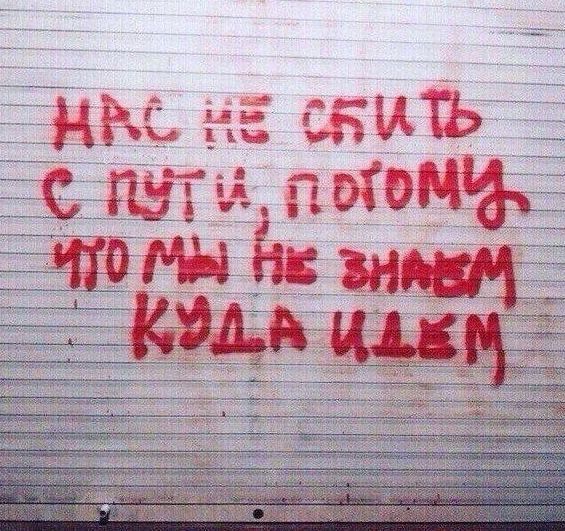 НАС НЕ СБИТЬ
С ПУТИ, ПОТОМУ
ЧТО МЫ НЕ ЗНАЕМ
КУДА ИДЕМ